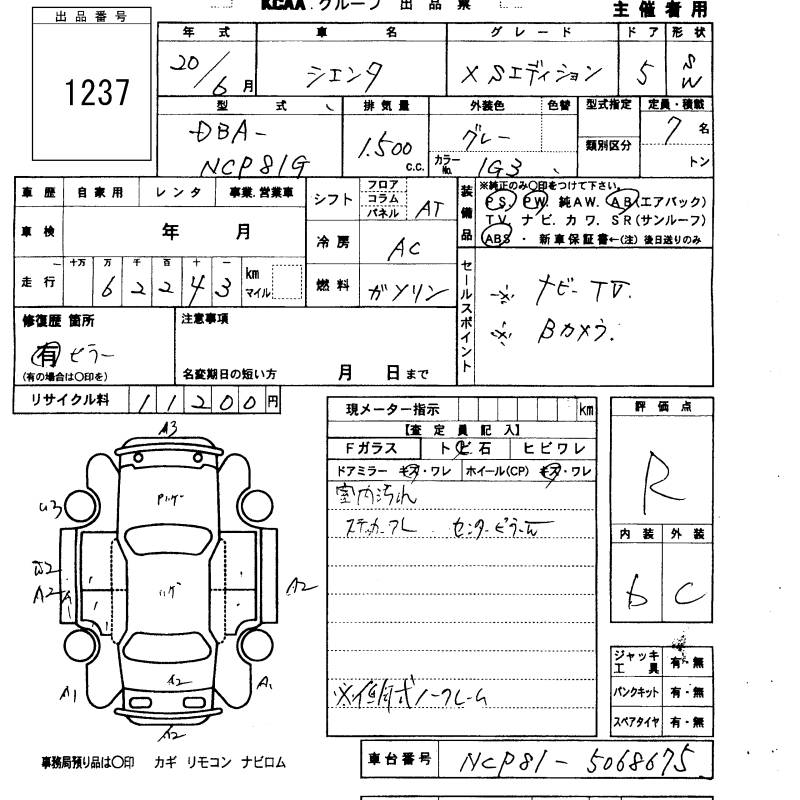 KCAA グループ 出品票
主催者用
出品番号
1237
年式 車名 グレード ドア 形状
20/6月 シエンタ X Sエディション 5 SW
型式 排気量 外装色 色替 型式指定 定員・積載
DBA-NCP81G 1.500 c.c. グレー 7名
カラーNo. 1G3 類別区分 トン
車歴 自家用 レンタ 事業.営業車
車検 年 月
走行 十万 万 千 百 十 一
6 2 2 4 3 km マイル
シフト フロア コラム パネル AT
冷房 AC
燃料 ガソリン
装備品
※純正のみ〇印をつけて下さい。
PS. PW. 純AW. AB(エアバック)
TV. ナビ. カワ. SR(サンルーフ)
ABS・新車保証書←(注)後日送りのみ
セールスポイント
※ ナビーTV.
※ Bカメラ.
修復歴 箇所
有 ピラー
(有の場合は〇印を)
注意事項
名変期日の短い方 月 日まで
リサイクル料 11200円
現メーター指示 km
【査定員記入】
Fガラス トビ石 ヒビワレ
ドアミラー キズ・ワレ ホイール(CP) キズ・ワレ
室内汚れ
ステッカー
センターピラー
評価点
R
内装 外装
b C
A3
ハゲ
U3
ハゲ
W2
A2 A1
A2
A2
A1
A1
A2
ジャッキ工具 有・無
パンクキット 有・無
スペアタイヤ 有・無
事務局預り品は〇印 カギ リモコン ナビロム
車台番号 NCP81-5068675